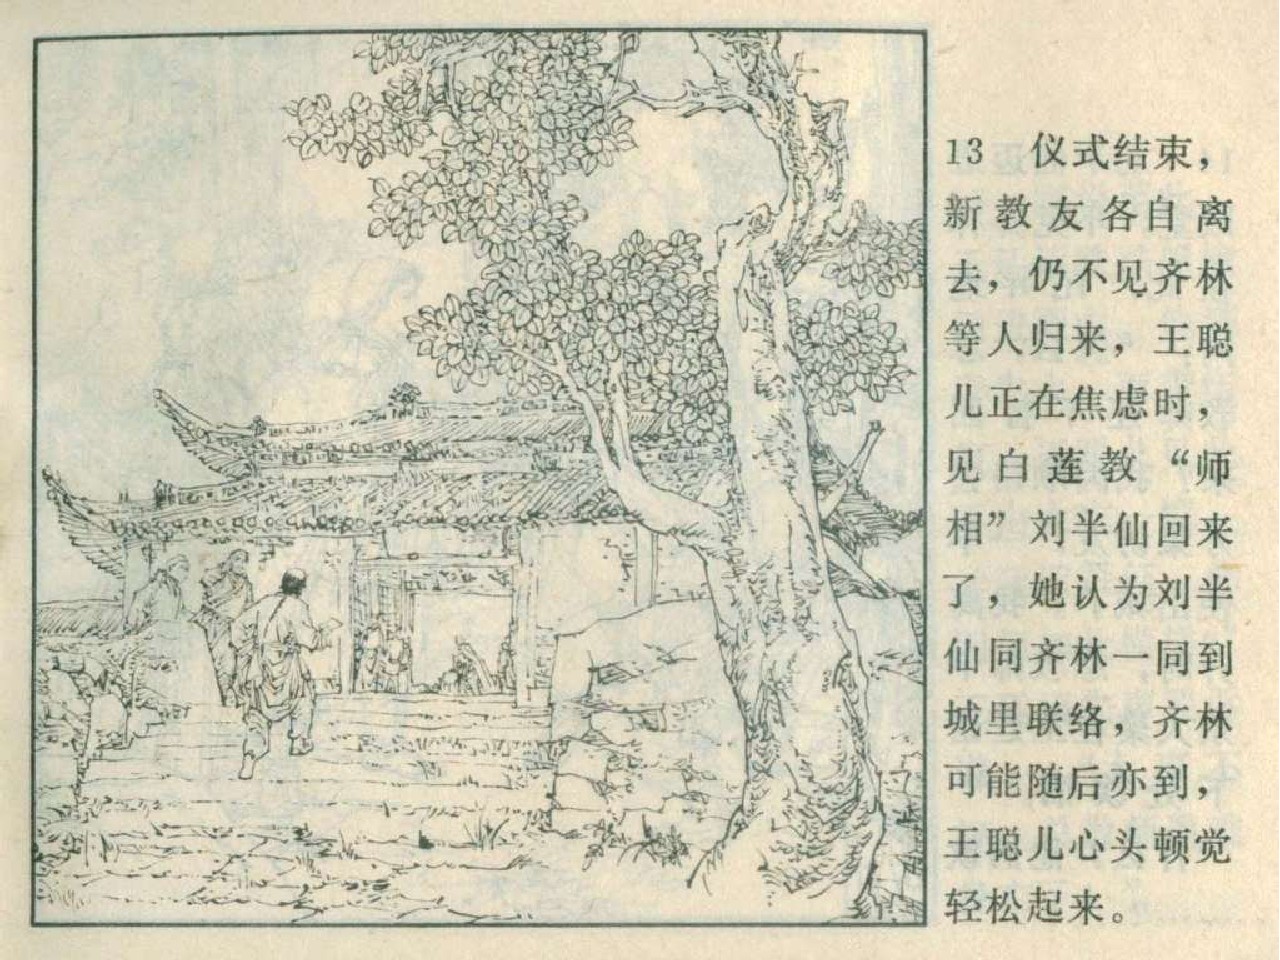 13　仪式结束，
新教友各自离
去，仍不见齐林
等人归来，王聪
儿正在焦虑时，
见白莲教“师
相”刘半仙回来
了，她认为刘半
仙同齐林一同到
城里联络，齐林
可能随后亦到，
王聪儿心头顿觉
轻松起来。